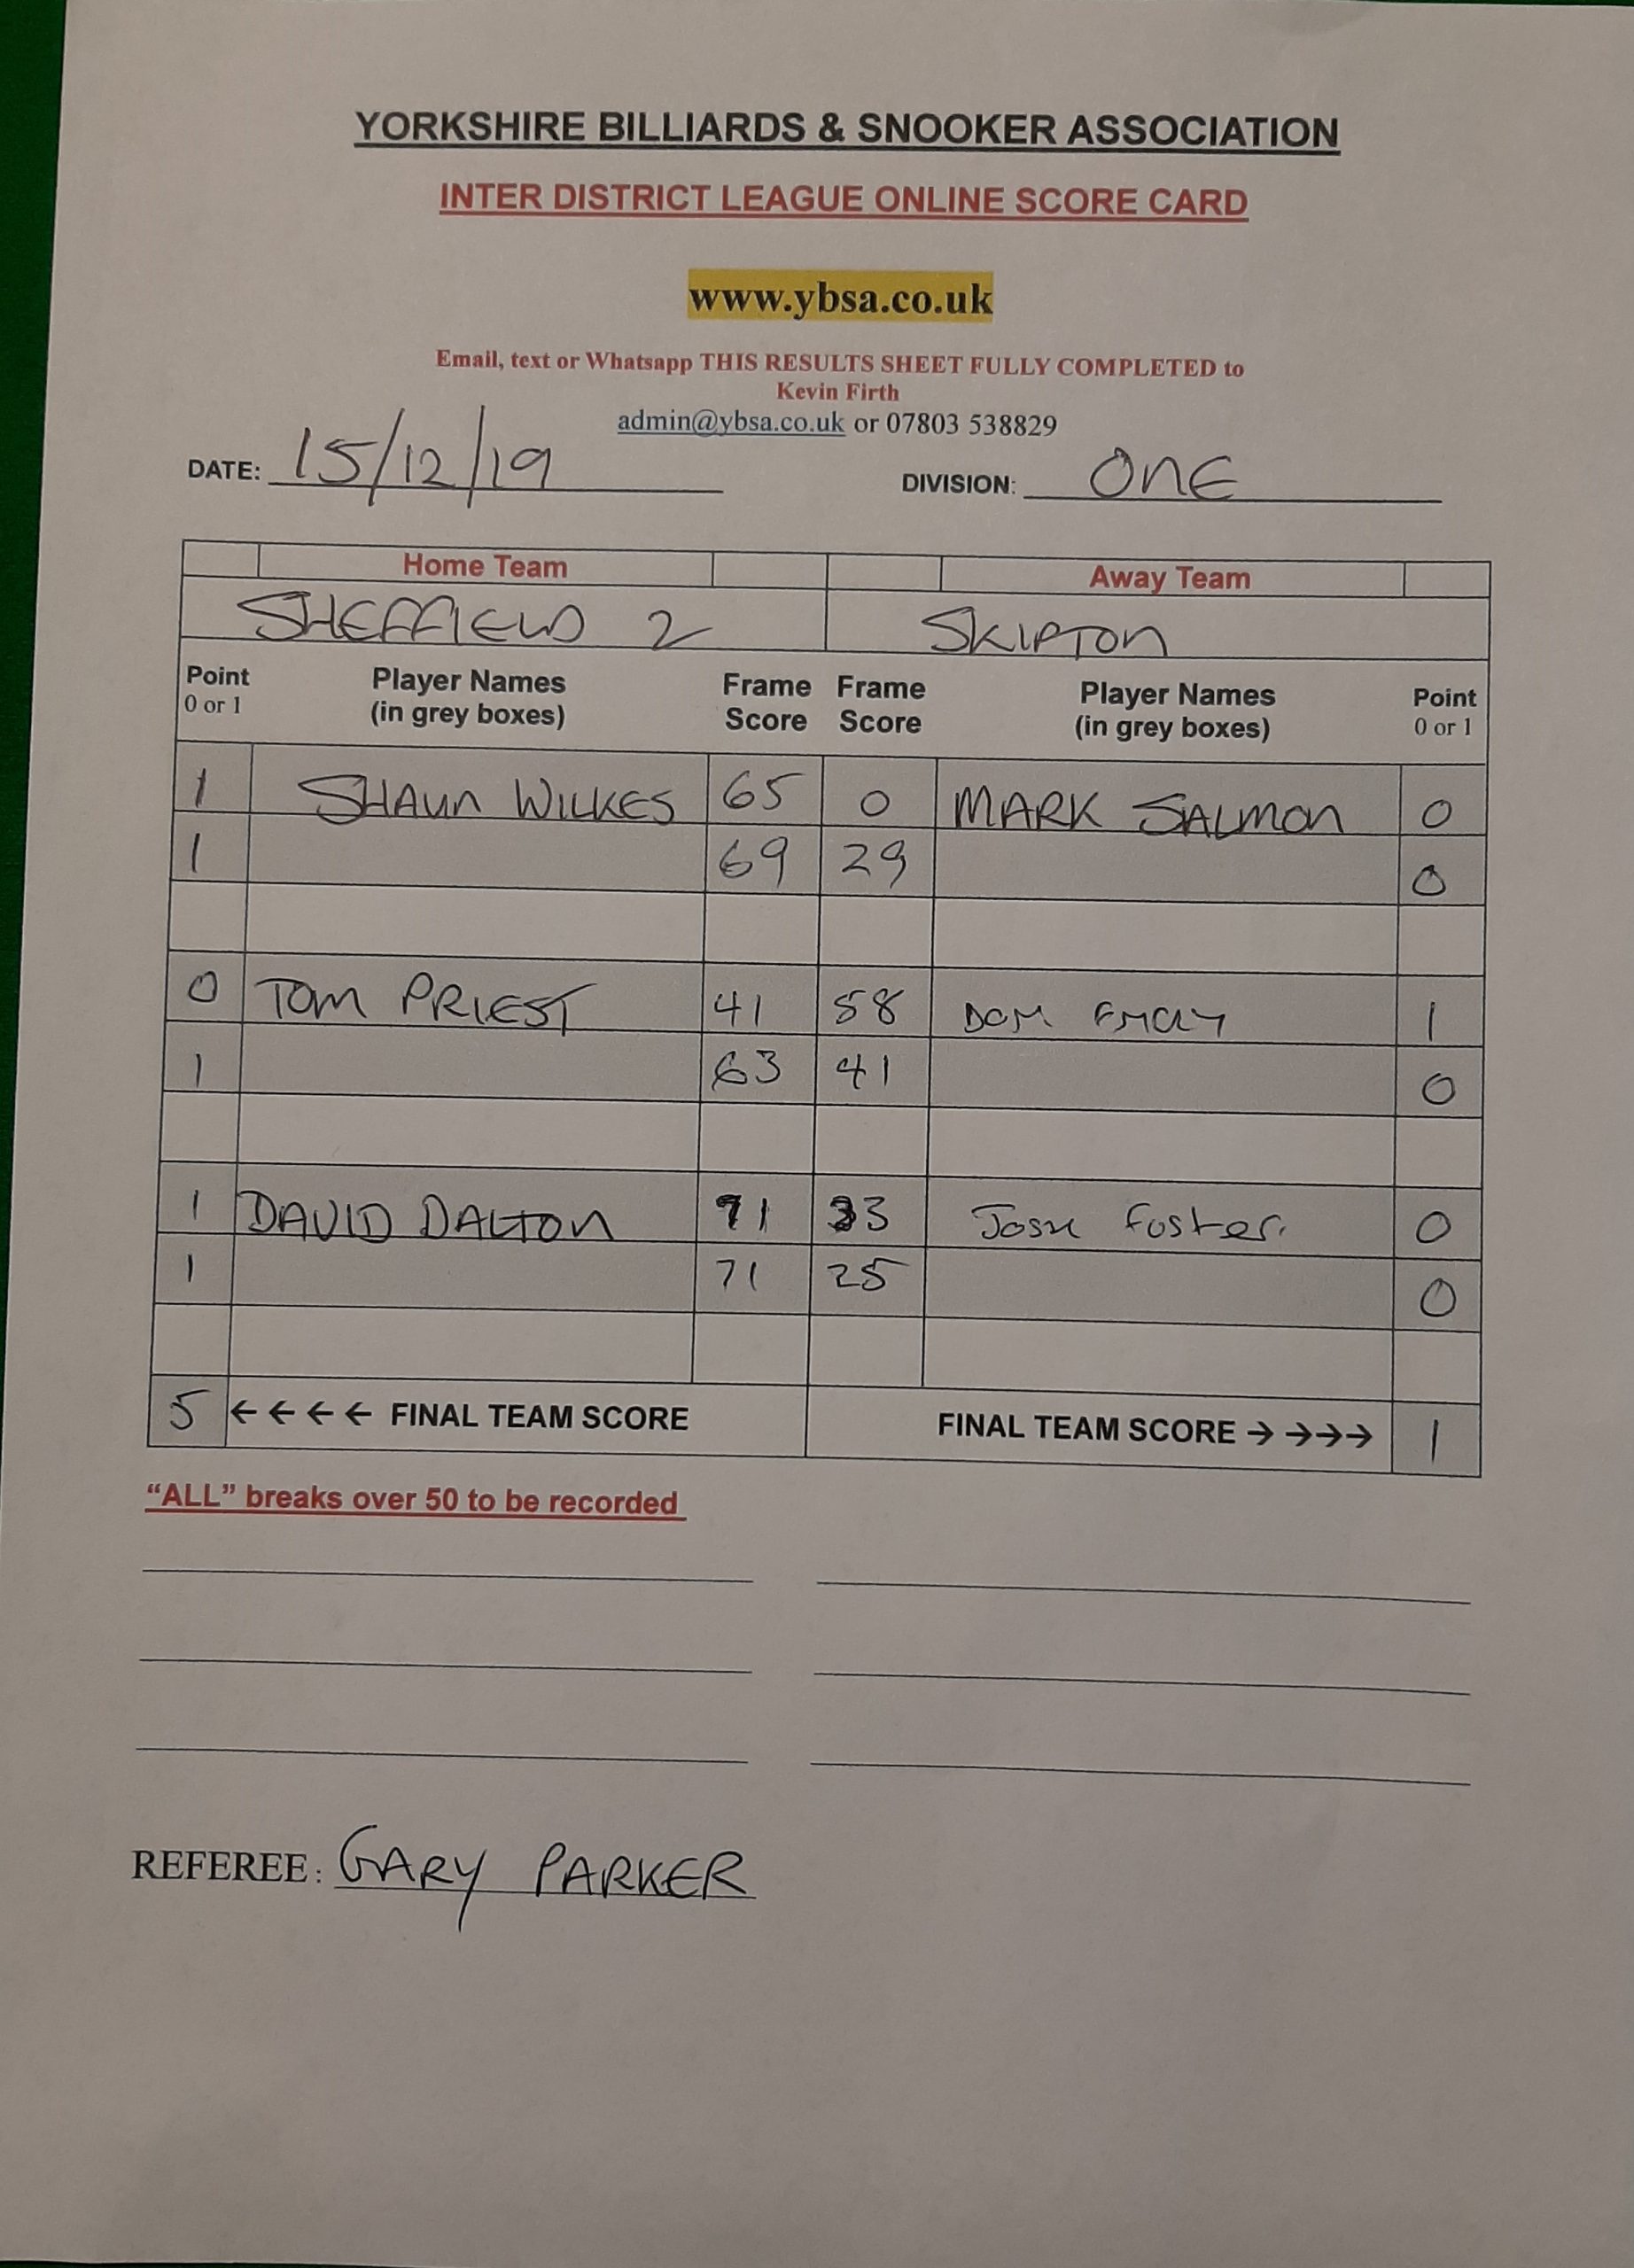 YORKSHIRE BILLIARDS & SNOOKER ASSOCIATION
INTER DISTRICT LEAGUE ONLINE SCORE CARD
www.ybsa.co.uk
Email, text or Whatsapp THIS RESULTS SHEET FULLY COMPLETED to
Kevin Firth
admin@ybsa.co.uk or 07803 538829
DATE: 15/12/19 DIVISION: ONE
Home Team Away Team
SHEFFIELD 2 SKIPTON
Point Player Names Frame Frame Player Names Point
0 or 1 (in grey boxes) Score Score (in grey boxes) 0 or 1
1 SHAUN WILKES 65 0 MARK SALMON 0
1 69 29 0
0 TOM PRIEST 41 58 DOM 1
1 63 41 0
1 DAVID DALTON 1 3 Josh Foster. 0
1 71 25 0
5 ←←←← FINAL TEAM SCORE FINAL TEAM SCORE →→→→ 1
“ALL” breaks over 50 to be recorded
REFEREE: GARY PARKER